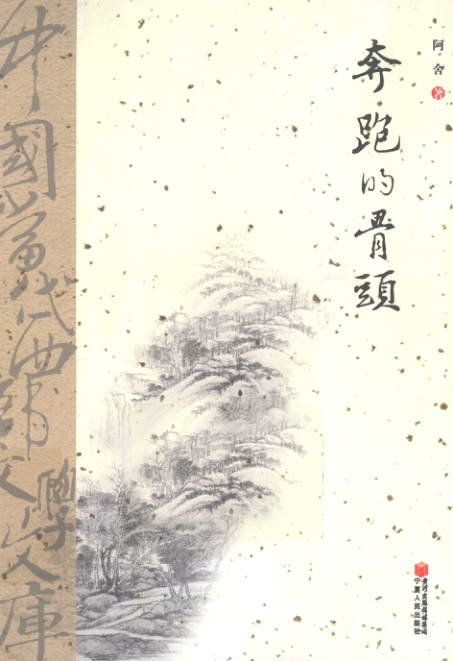 阿舍 著
奔跑的骨頭
中國當代西部文學文庫
黄河出版传媒集团
宁夏人民出版社